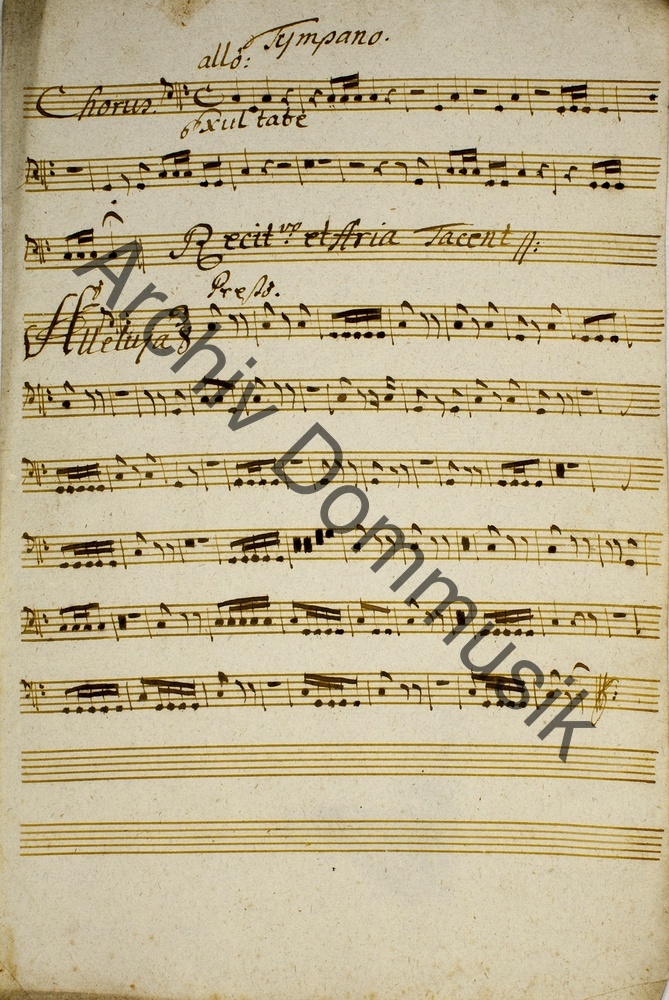 Tympano.
allo:
Chorus.
Exultate
Recit.vo et Aria Tacent
Presto.
Alleluja
Archiv Dommusik